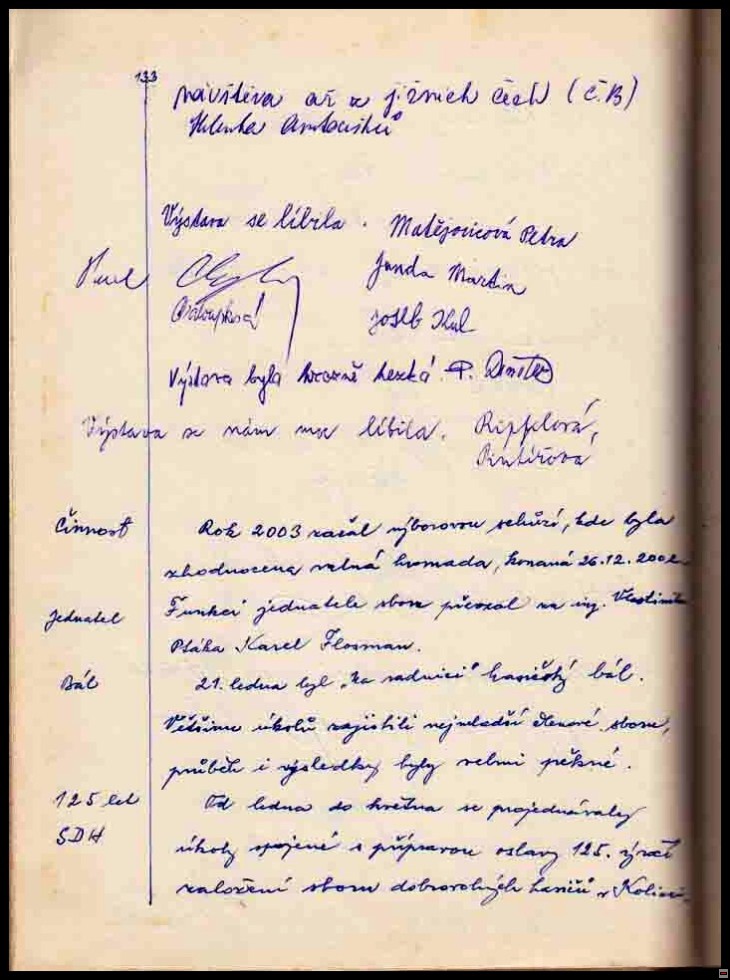 133
návštěva až z jižních čech (Č.B)
Výstava se líbila. Matějovicová Petra
Pavel
Janda Martin
Chaloupková
Josef
Výstava byla hrozně hezká. P.
Výstava se nám moc líbila. Ripfelová,
Pintířova
Činnost Rok 2003 začal výborovou schůzí, kde byla
zhodnocena valná hromada, konaná 26.12.2002.
Jednatel Funkci jednatele sboru převzal za ing. Vlastimila
Ptáka Karel Flosman.
Bál 21. ledna byl „Na radnici" hasičský bál.
Většinu úkolů zajistili nejmladší členové sboru,
průběh i výsledky byly velmi pěkné.
125 let Od ledna do května se projednávaly
SDH úkoly spojené s přípravou oslavy 125. výročí
založení sboru dobrovolných hasičů v